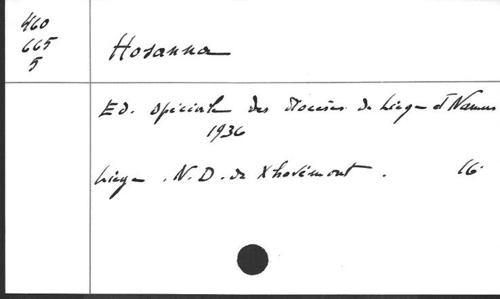 460
665
5
Hosanna
Ed. spéciale des diocèses de Liège et Namur
1936
Liège . N. D. de Xhovémont . 16°